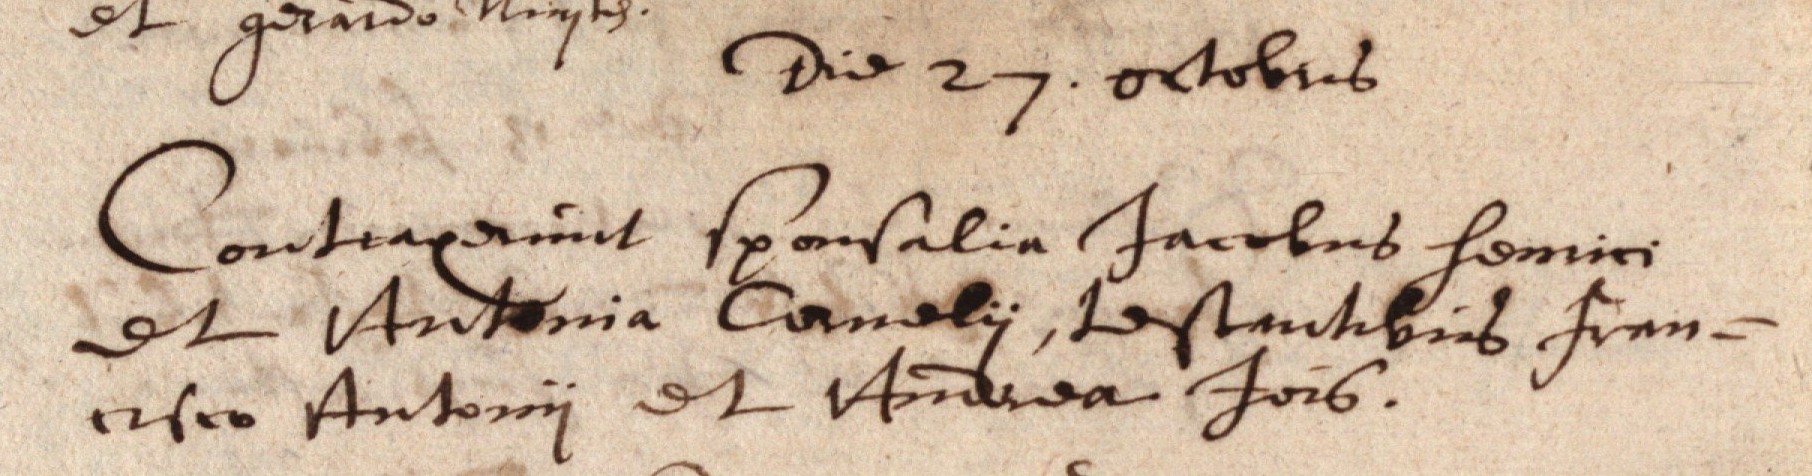 et gerardo
Die 27. octobris
Contraxerunt sponsalia Jacobus henrici
et Antonia Cornelij, testantibus fran=
cisco Antonij et Andrea Jois.